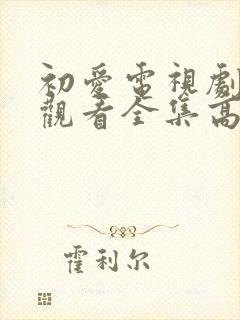 初愛電視劇
觀看全集高
霍利尔